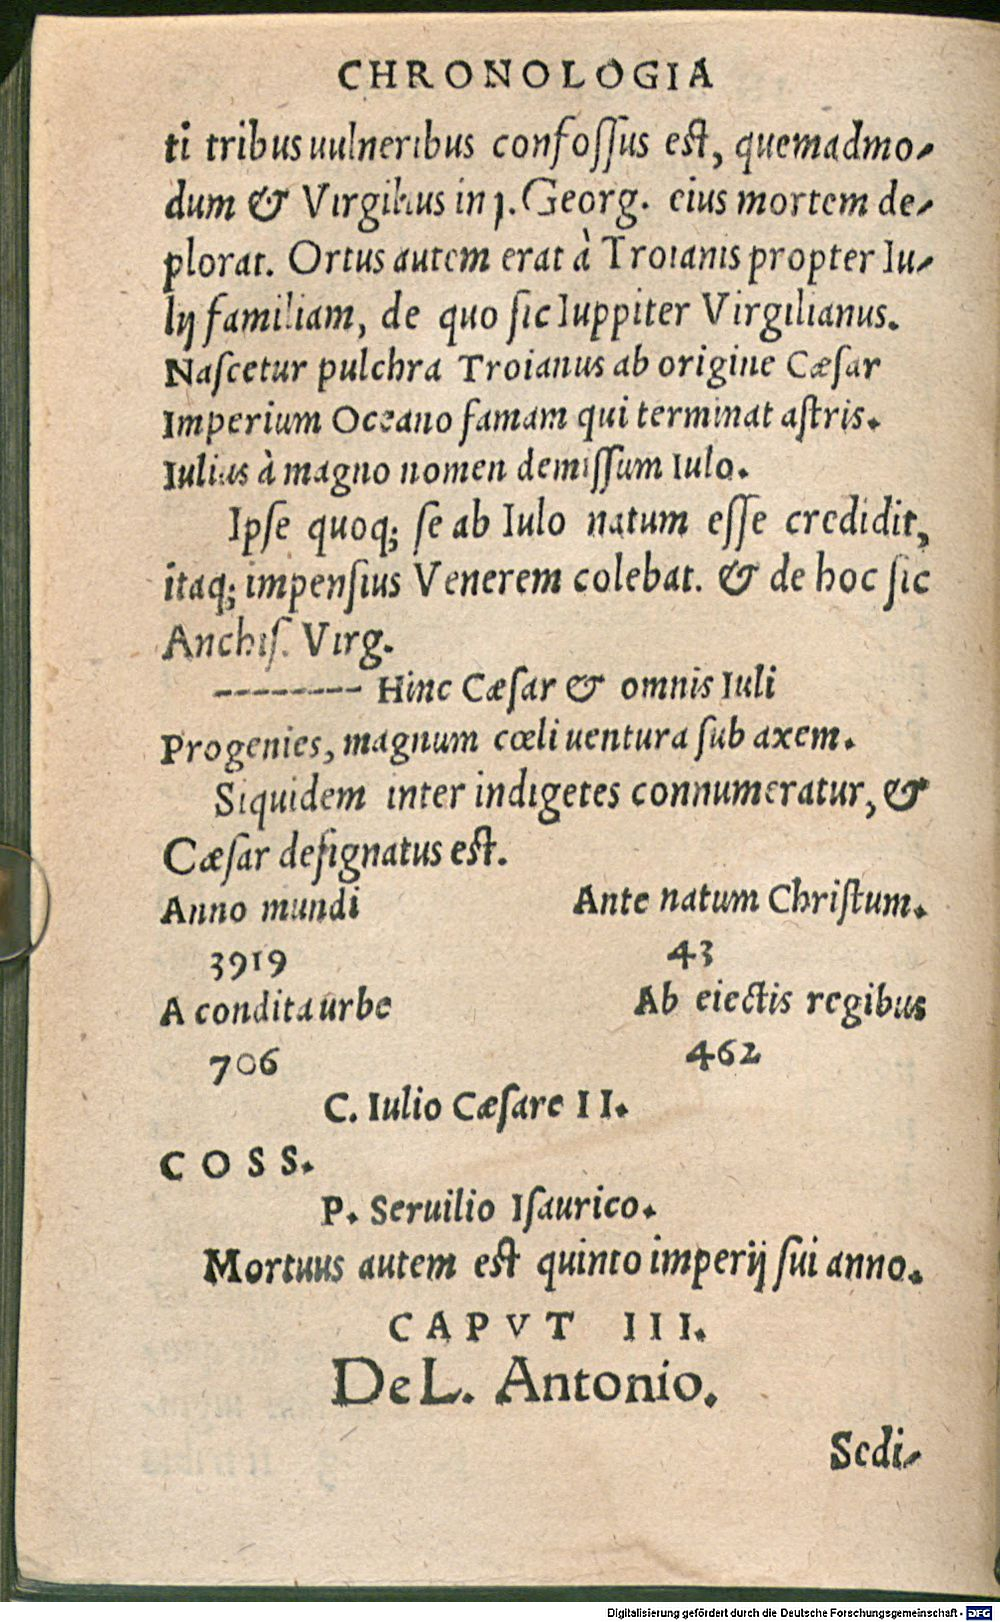 CHRONOLOGIA
ti tribus uulneribus confoſſus eſt, quemadmo-
dum & Virgilius in 1. Georg. eius mortem de-
plorat. Ortus autem erat à Troianis propter Iu-
lij familiam, de quo ſic Iuppiter Virgilianus.
Naſcetur pulchra Troianus ab origine Cæſar
Imperium Oceano famam qui terminat aſtris.
Iulius à magno nomen demiſſum Iulo.
Ipſe quoq; ſe ab Iulo natum eſſe credidit,
itaq; impenſius Venerem colebat. & de hoc ſic
Anchiſ. Virg.
-------- Hinc Cæſar & omnis Iuli
Progenies, magnum cœli uentura ſub axem.
Siquidem inter indigetes connumeratur, &
Cæſar deſignatus eſt.
Anno mundi Ante natum Chriſtum.
3919 43
A condita urbe Ab eiectis regibus
706 462
C. Iulio Cæſare II.
COSS.
P. Seruilio Iſaurico.
Mortuus autem eſt quinto imperij ſui anno.
CAPVT III.
De L. Antonio.
Sedi-
Digitalisierung gefördert durch die Deutsche Forschungsgemeinschaft - DFG